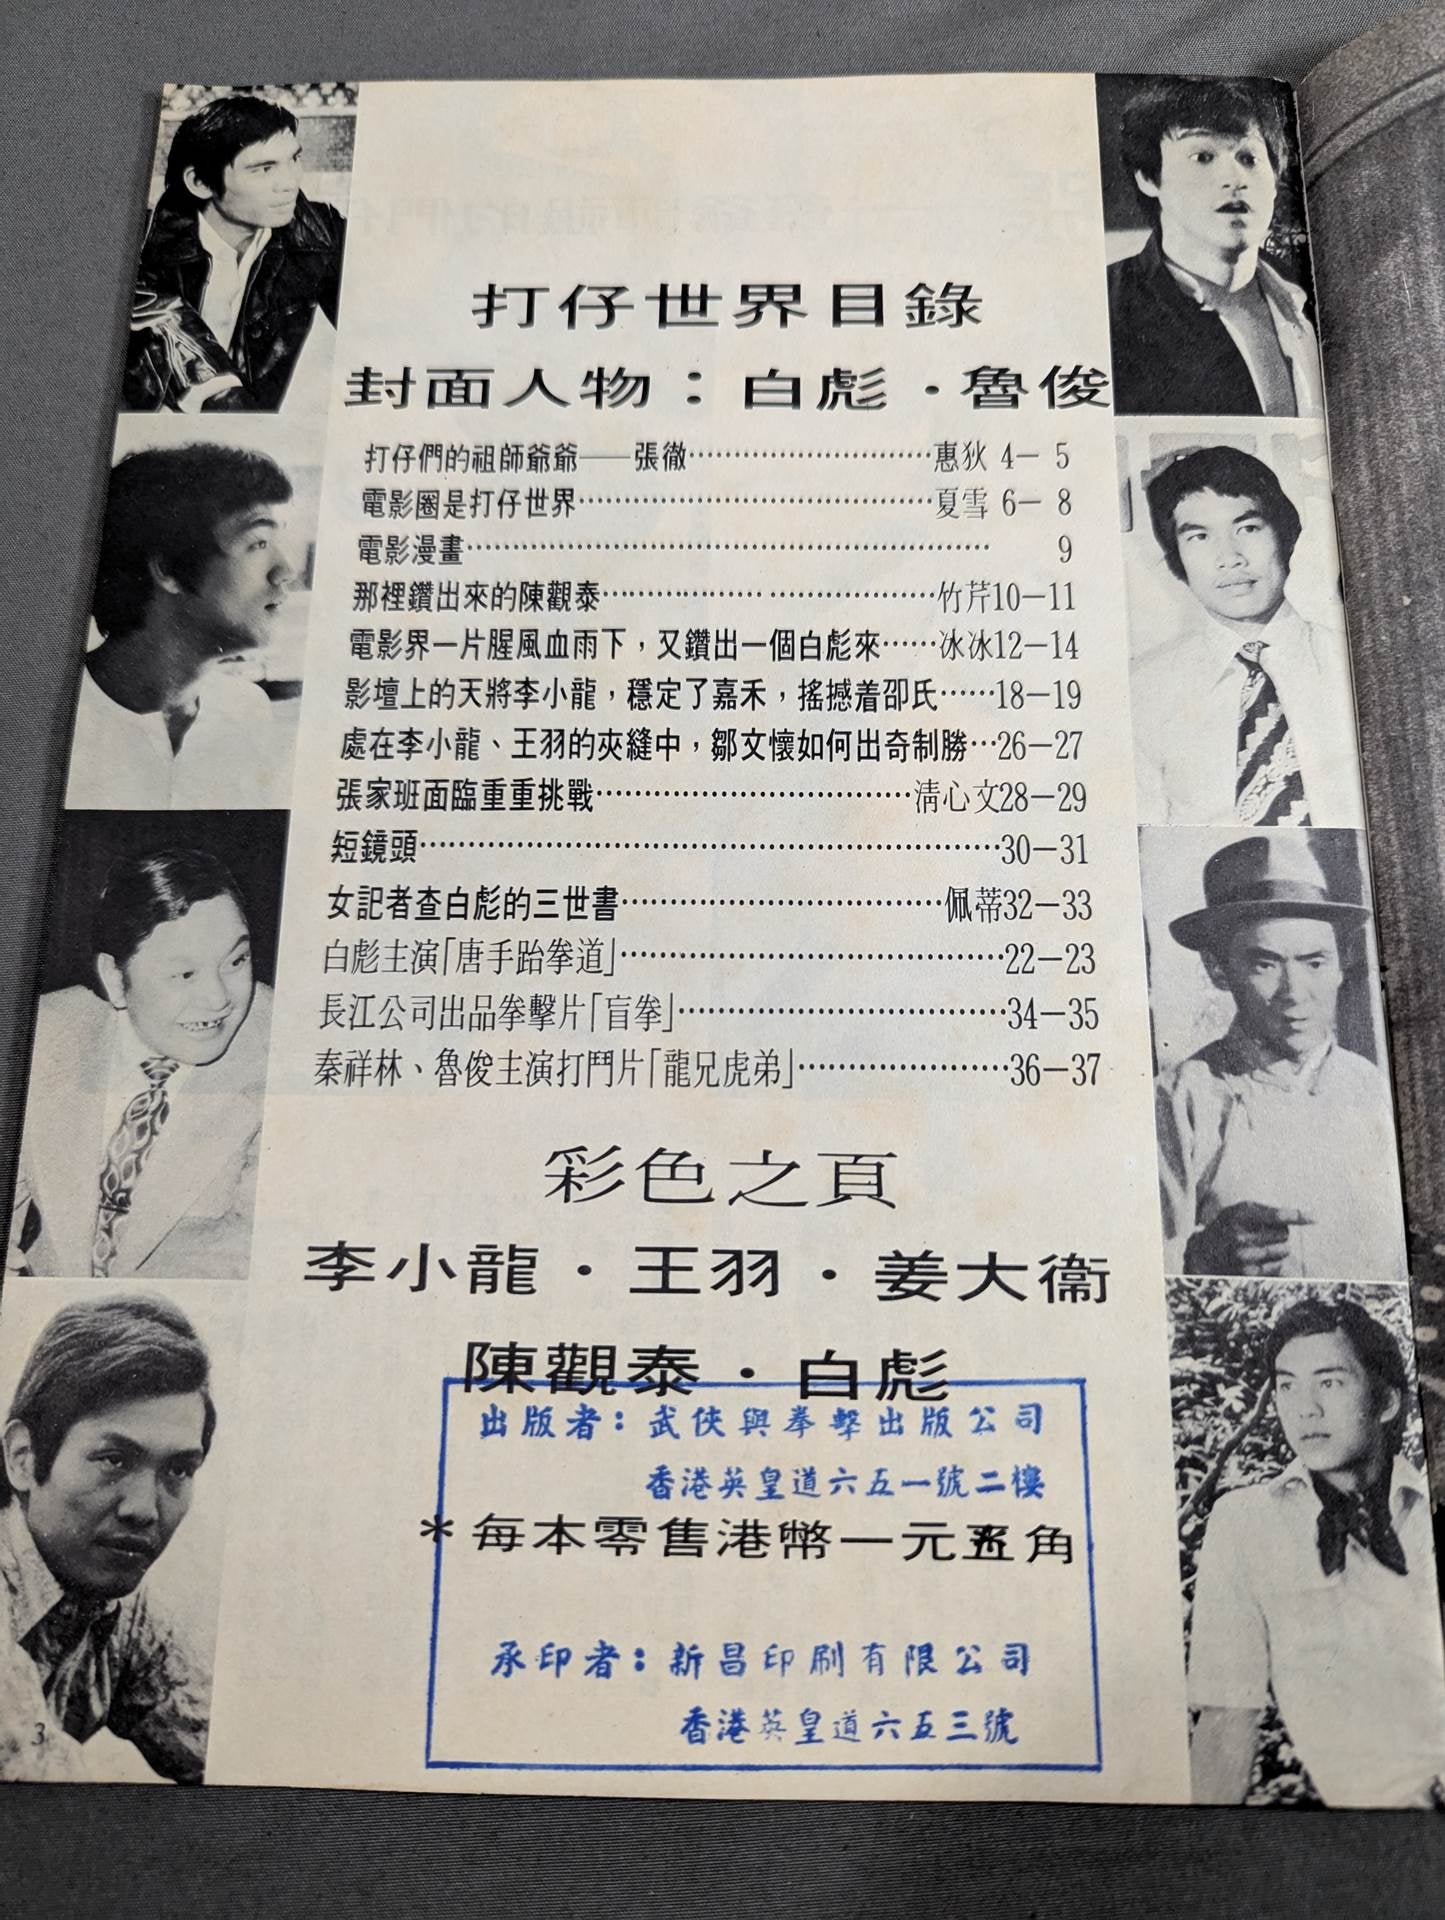 打仔世界目錄
封面人物：白彪·魯俊
打仔們的祖師爺爺——張徹⋯⋯⋯⋯⋯⋯⋯⋯惠狄 4－5
電影圈是打仔世界⋯⋯⋯⋯⋯⋯⋯⋯⋯⋯⋯夏雪 6－8
電影漫畫⋯⋯⋯⋯⋯⋯⋯⋯⋯⋯⋯⋯⋯⋯⋯ 9
那裡鑽出來的陳觀泰⋯⋯⋯⋯⋯⋯⋯⋯⋯⋯竹芹10－11
電影界一片腥風血雨下，又鑽出一個白彪來⋯⋯冰冰12－14
影壇上的天將李小龍，穩定了嘉禾，搖撼着邵氏⋯⋯18－19
處在李小龍、王羽的夾縫中，鄒文懷如何出奇制勝⋯26－27
張家班面臨重重挑戰⋯⋯⋯⋯⋯⋯⋯⋯⋯清心文28－29
短鏡頭⋯⋯⋯⋯⋯⋯⋯⋯⋯⋯⋯⋯⋯⋯⋯30－31
女記者查白彪的三世書⋯⋯⋯⋯⋯⋯⋯⋯⋯佩蒂32－33
白彪主演「唐手跆拳道」⋯⋯⋯⋯⋯⋯⋯⋯⋯22－23
長江公司出品拳擊片「盲拳」⋯⋯⋯⋯⋯⋯⋯34－35
秦祥林、魯俊主演打鬥片「龍兄虎弟」⋯⋯⋯⋯36－37
彩色之頁
李小龍·王羽·姜大衞
陳觀泰·白彪
出版者：武俠與拳擊出版公司
香港英皇道六五一號二樓
＊每本零售港幣一元角
承印者：新昌印刷有限公司
香港英皇道六五三號
3